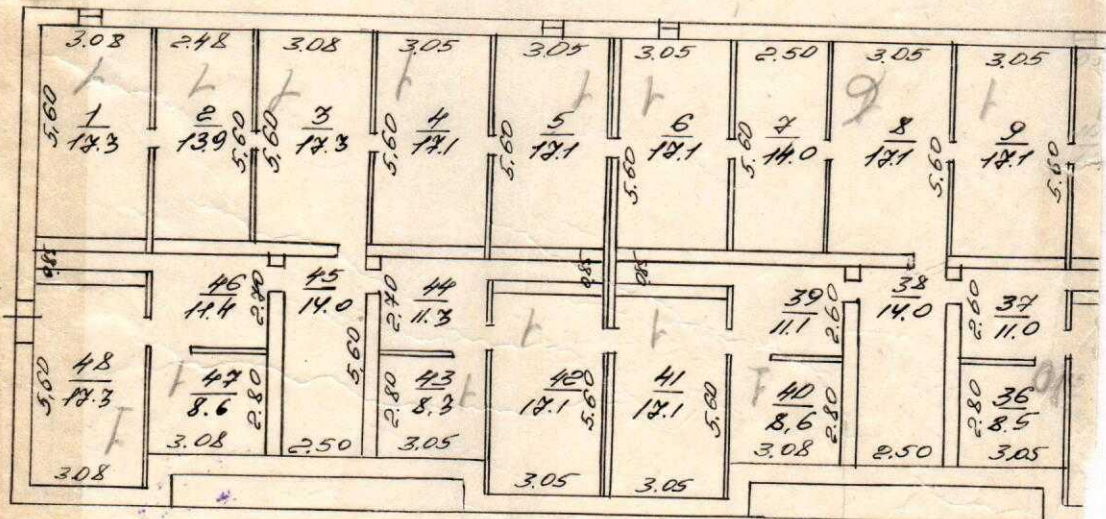 3.08 2.48 3.08 3.05 3.05 3.05 2.50 3.05 3.05
1 1 1 1 1 1 1
5,60 1 17.3
2 13.9 5,60
5,60 3 17.3
5,60 4 17.1
5,60 5 17.1
5,60 6 17.1
5,60 7 14.0
8 17.1 5,60
9 17.1 5,60
0,85 0,85 0,85
46 11.4 2.70
45 14.0 5,60
2.70 44 11.3
39 11.1 2.60
38 14.0
2.60 37 11.0
5,60 48 17.3
47 8.6 2.80
2.80 43 8.3
42 17.1 5.60
41 17.1 5,60
40 8,6 2.80
2.80 36 8.5
1 1 1 1 1 1 10
3.08 3.08 2.50 3.05 3.05 3.05 3.08 2.50 3.05